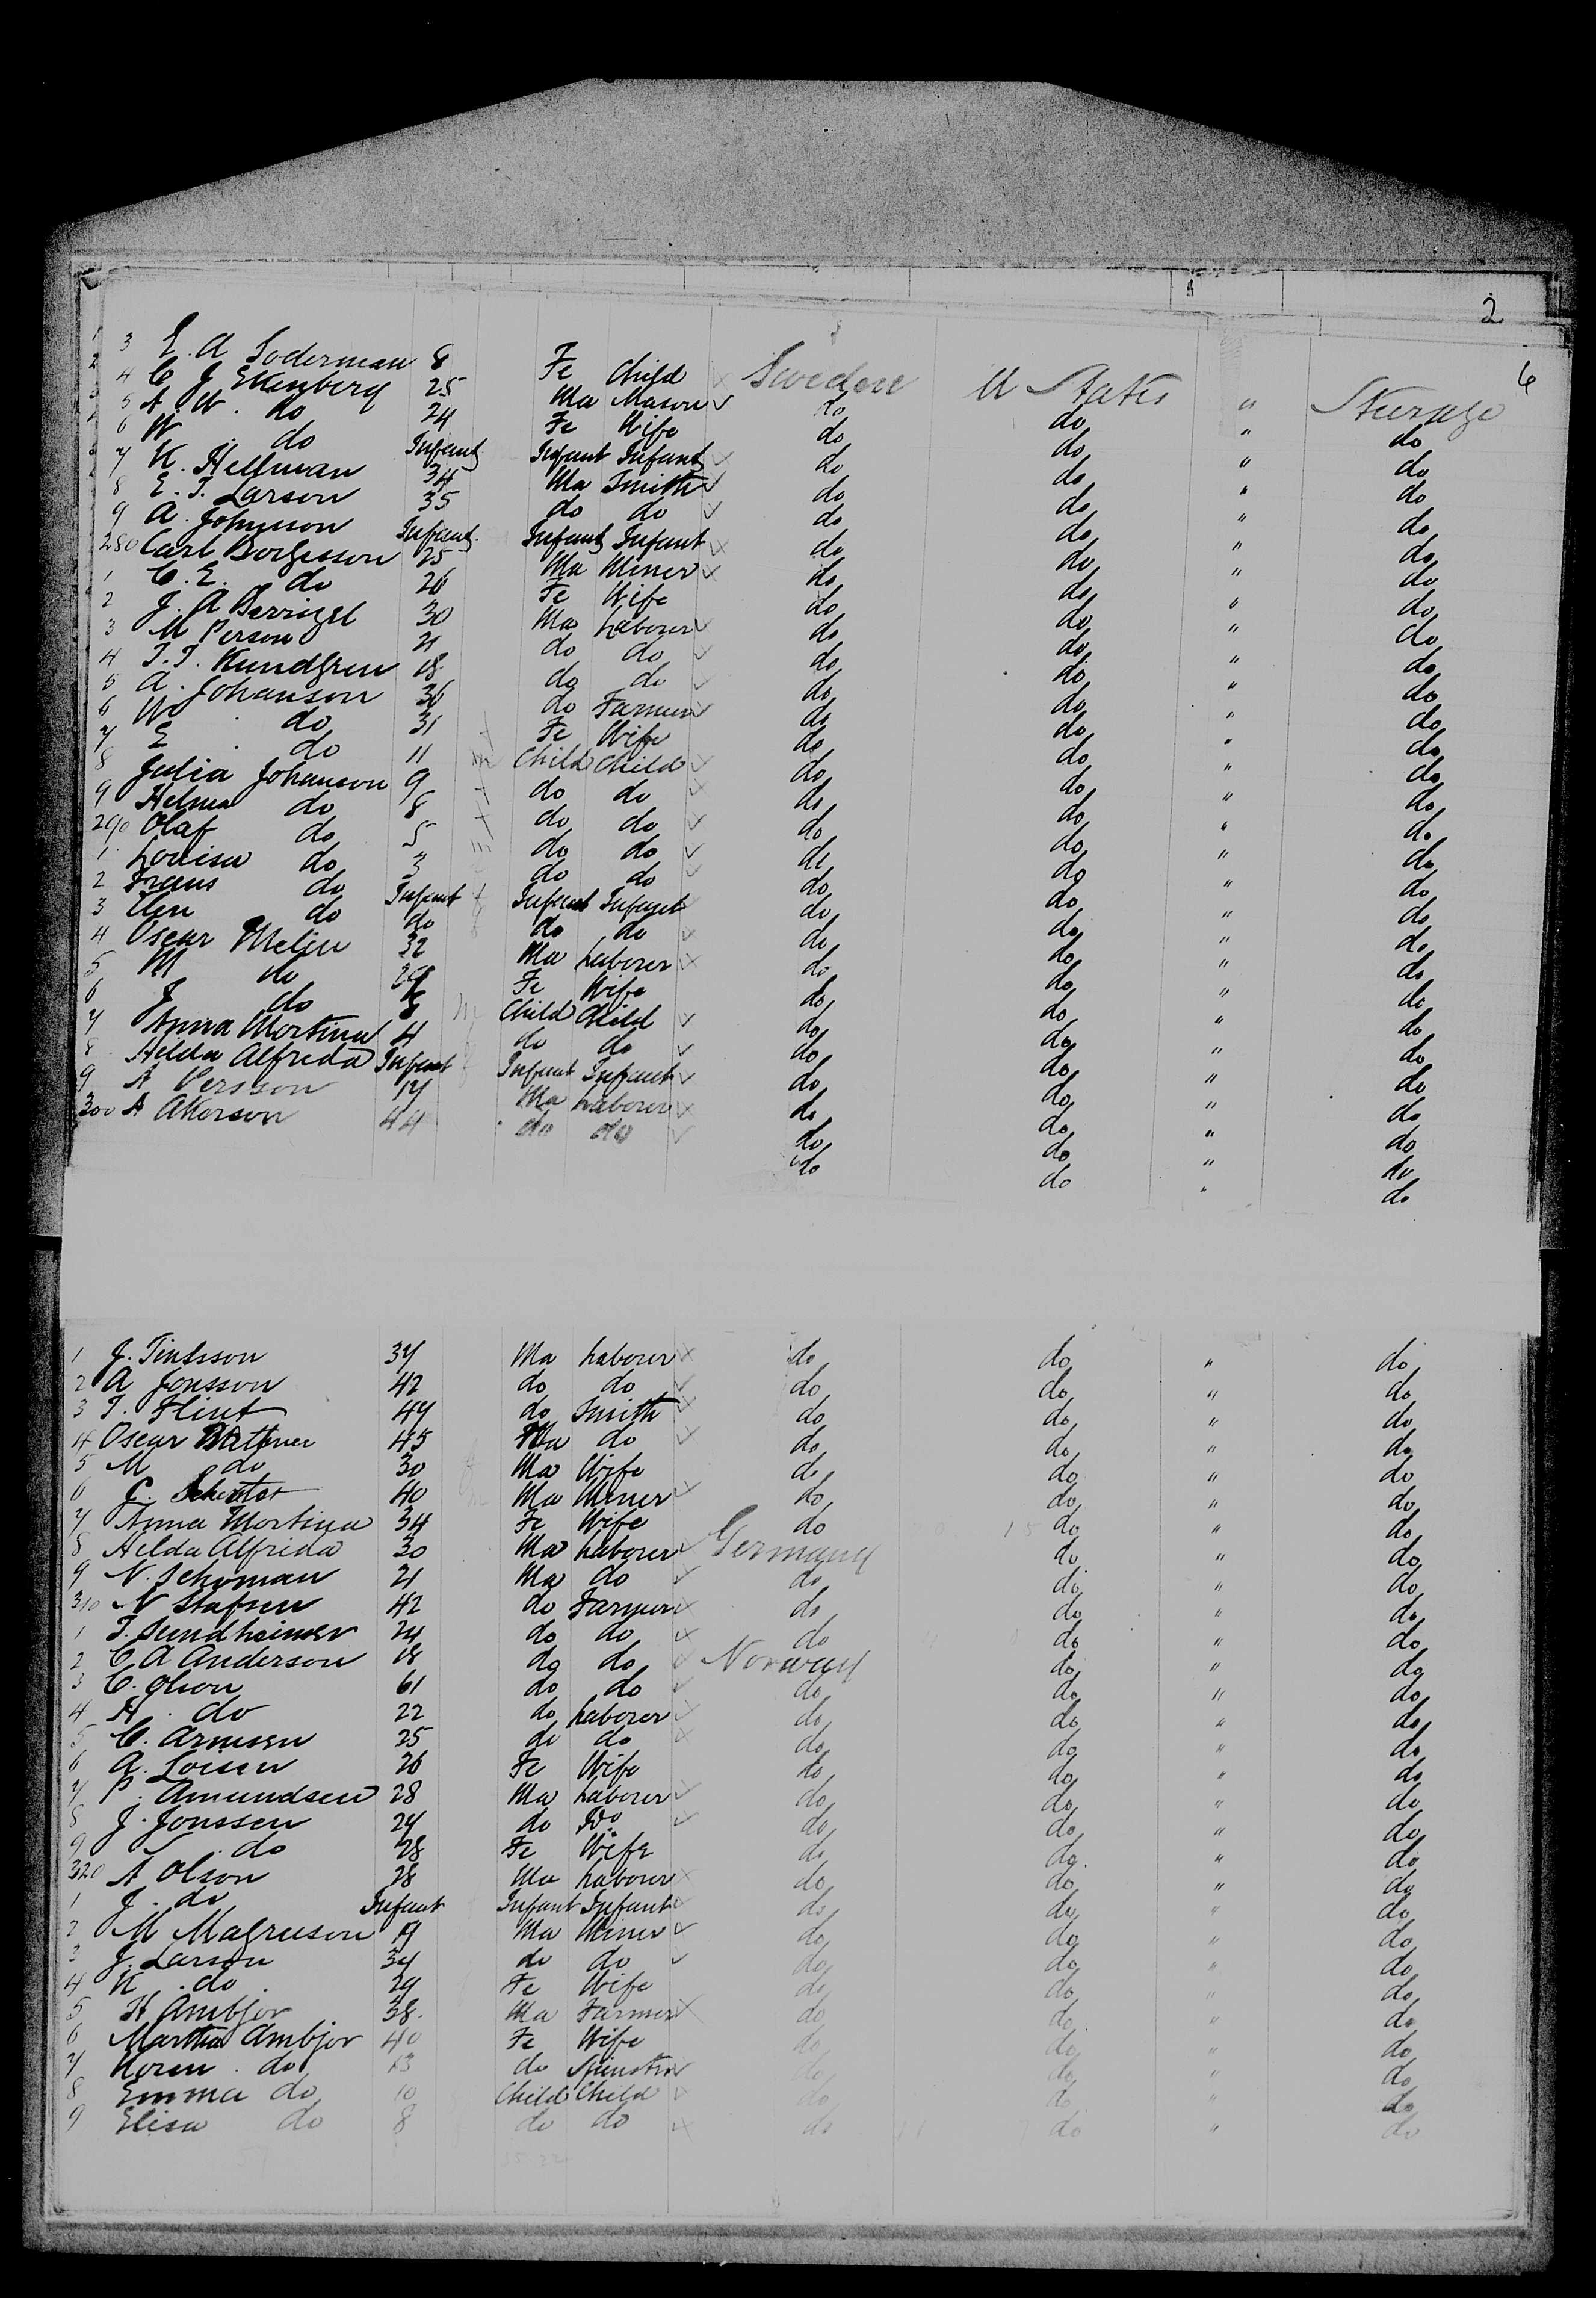 2
6
3 E. A Soderman 8 Fe Child Sweden U States " Steerage
4 C J Ekenberg 25 Ma Mason do do " do
5 A. W. do 24 Fe Wife do do " do
6 W. do Infant Infant Infant do do " do
7 K. Hellman 34 Ma Smith do do " do
8 E. T. Larson 35 do do do do " do
9 A. Johnson Infant Infant Infant do do " do
280 Carl Borgesson 25 Ma Miner do do " do
1 C. E. do 26 Fe Wife do do " do
2 J. A 30 Ma Laborer do do " do
3 M Person 21 do do do do " do
4 T. T. 18 do do do do " do
5 A. Johanson 36 do Farmer do do " do
6 W do 31 Fe Wife do do " do
7 E do 11 Child Child do do " do
8 Julia Johanson 9 do do do do " do
9 Helma do 8 do do do do " do
290 Olaf do 5 do do do do " do
1 Louisa do 3 do do do do " do
2 Frans do Infant Infant Infant do do " do
3 Elen do do do do do do " do
4 Oscar Melin 32 Ma Laborer do do " do
5 M do 29 Fe Wife do do " do
6 J do Child Child do do " do
7 Anna Mortina 4 do do do do " do
8 Hilda Alfreda Infant Infant Infant do do " do
9 A Persson 17 Ma Laborer do do " do
300 A Akerson 44 do do do do " do
1 J. 37 Ma Laborer do do " do
2 A Jonsson 42 do do do do " do
3 T. Flint 47 do Smith do do " do
4 Oscar 45 Ma do do do " do
5 M do 30 Ma Wife do do " do
6 C. 40 Ma Miner do do " do
7 Anna Mortina 34 Fe Wife do do " do
8 Helda Alfrida 30 Ma Laborer Germany do " do
9 N. Schoman 21 Ma do do do " do
310 N Stafsen 42 do Farmer do do " do
1 T. Sundheimer 24 do do do do " do
2 C A Anderson 18 do do Norway do " do
3 C. Olson 61 do do do do " do
4 A. do 22 do Laborer do do " do
5 C. Arnesen 25 do do do do " do
6 A. Loisen 26 Fe Wife do do " do
7 P. Amundsen 28 Ma Laborer do do " do
8 J. Jonssen 24 do Do do do " do
9 do 28 Fe Wife do do " do
320 A Olson 28 Ma Laborer do do " do
1 J. do Infant Infant Infant do do " do
2 M Magnuson 19 Ma Miner do do " do
3 J. Larson 34 do do do do " do
4 K. do 29 Fe Wife do do " do
5 H Ambjor 38 Ma Farmer do do " do
6 Martha Ambjor 40 Fe Wife do do " do
7 Koren do 13 do Spinster do do " do
8 Emma do 10 Child Child do do " do
9 Elisa do 8 do do do do " do